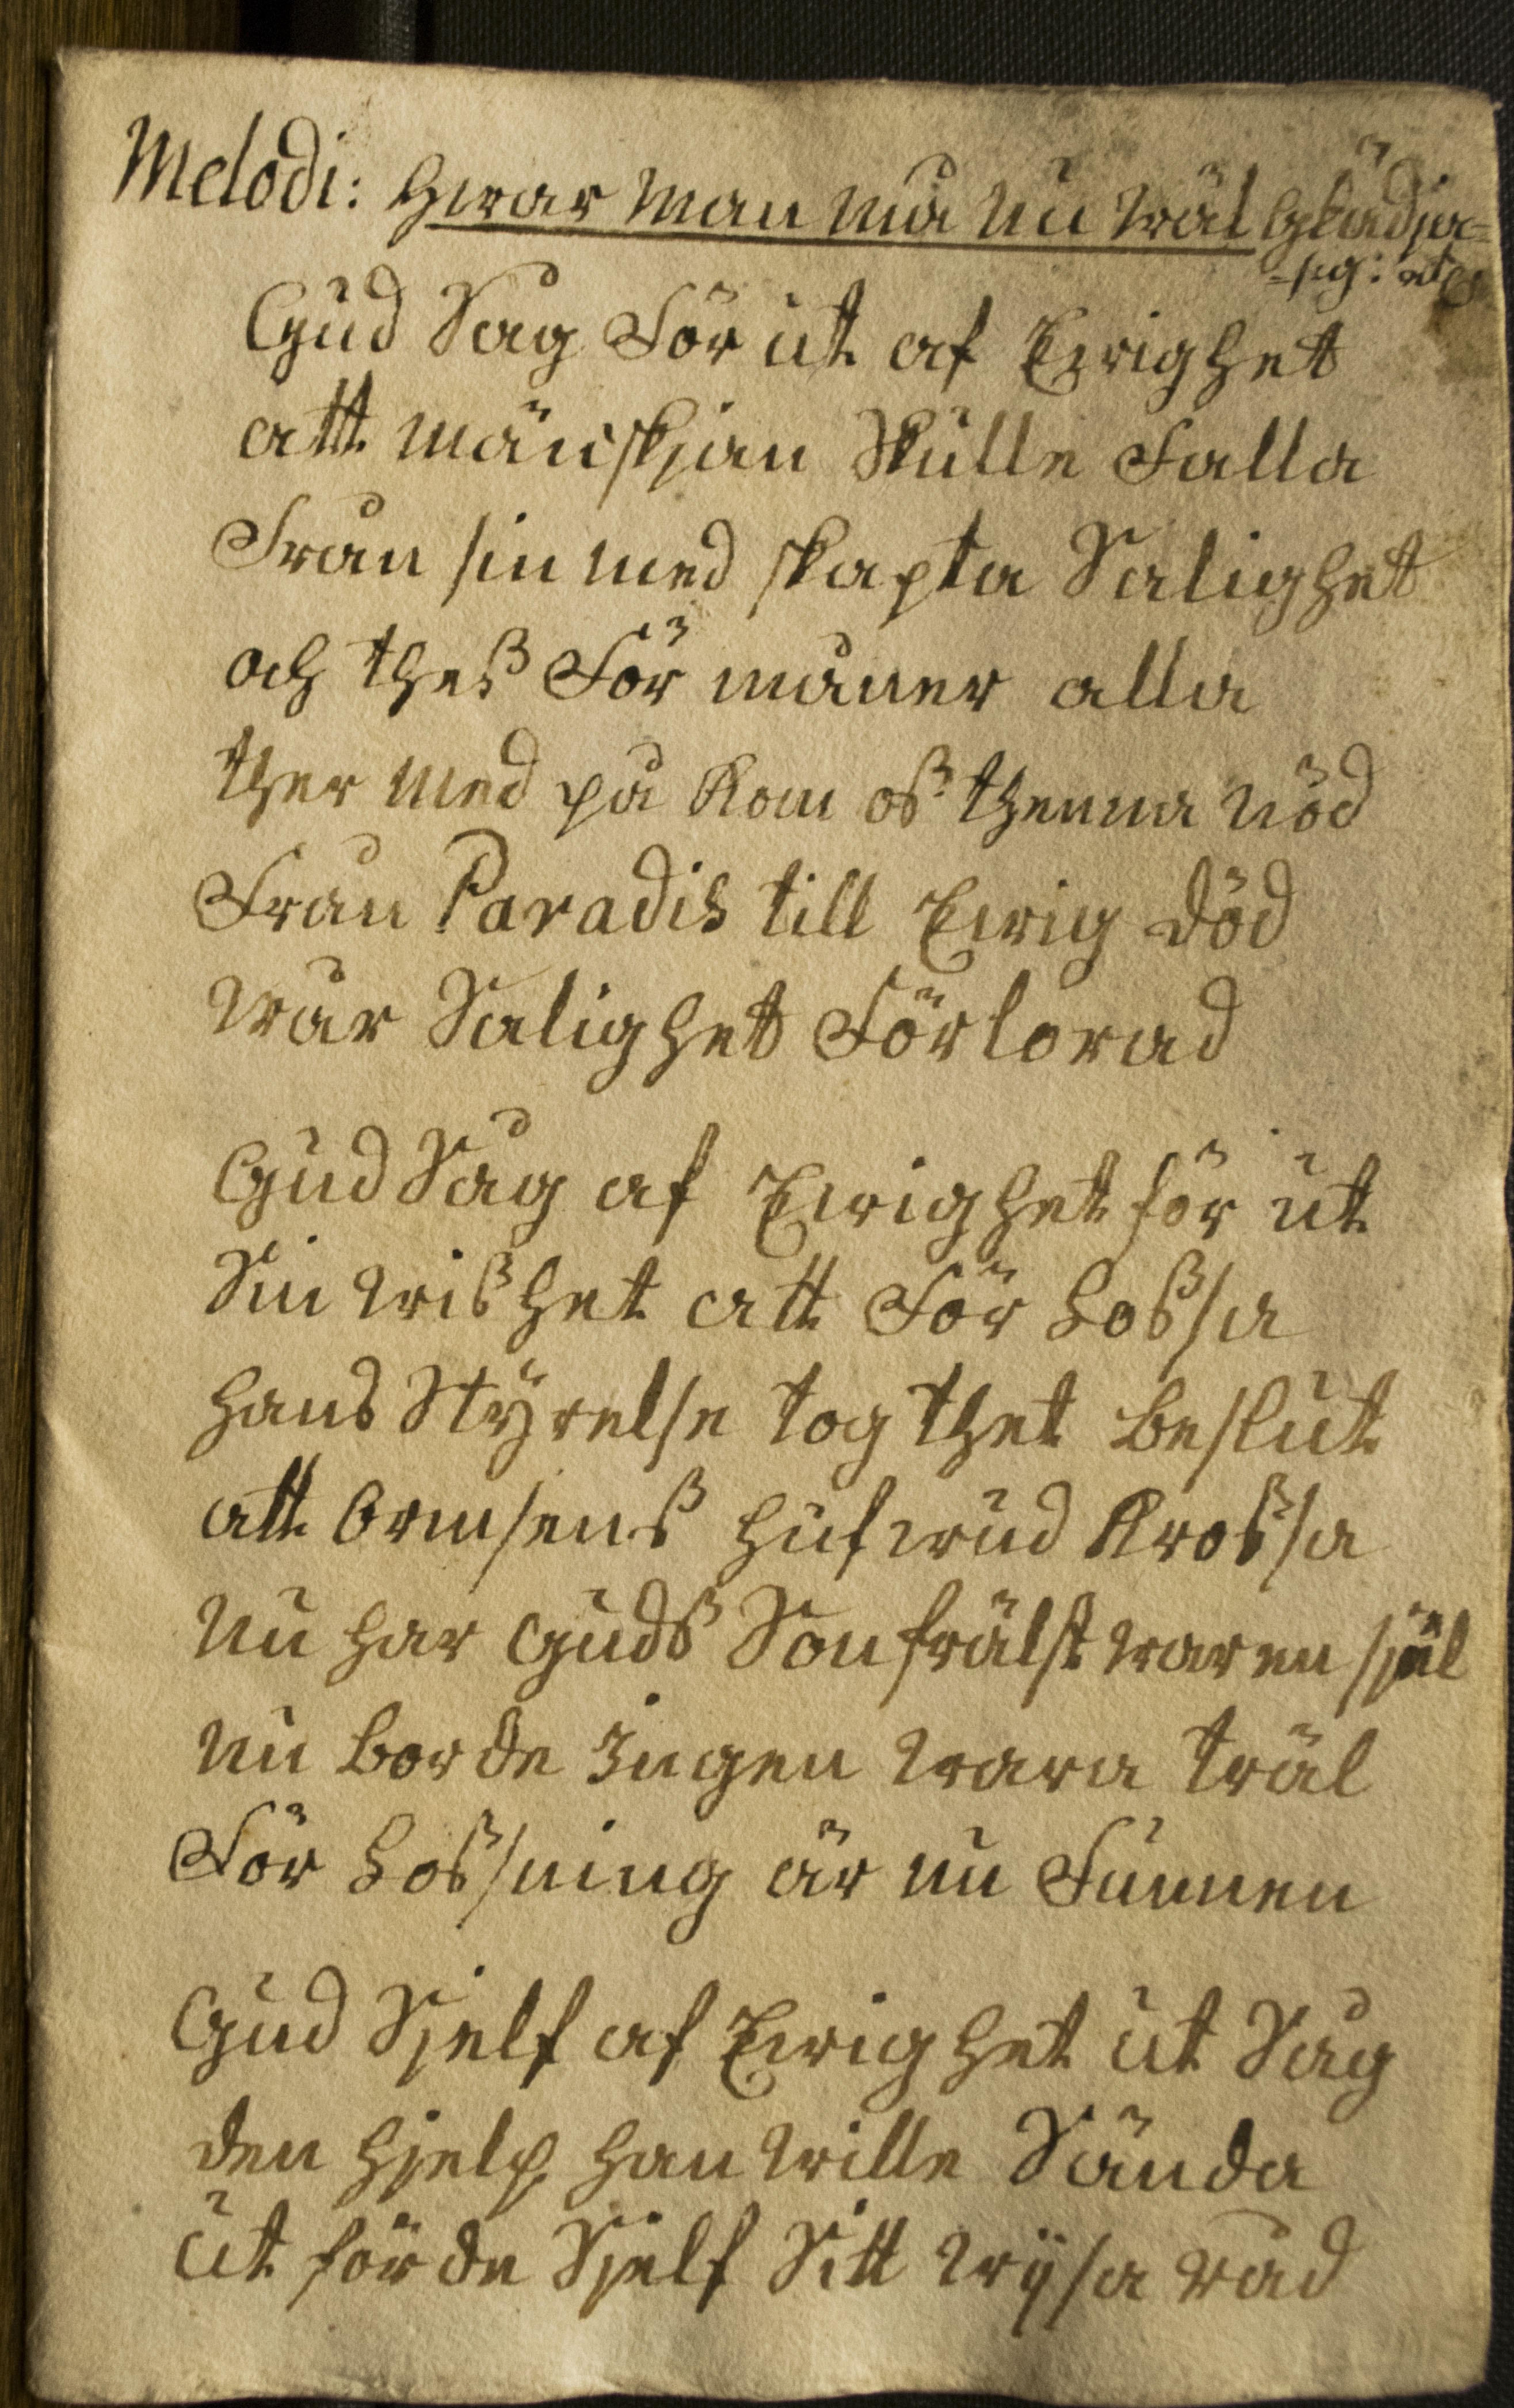 Melodi: Hwar Man Må Nu Wäl Glädja=
=sig: etc
Gud Såg För ut af Ewighet
att Mänskjan Skulle Falla
Från sin med skapta Salighet
och theß För måner alla
ther Med på Kom oß thenna Nöd
Från Paradis till Ewig död
Wår Salighet Förlorad
Gud Såg af Ewighet för ut
Sin Wißhet att För Loßsa
Hans Styrelse tog thet Beslut
att Ormsens Hufwud Kroßsa
Nu Har Guds Son frälst waren själ
Nu Borde Ingen Wara träl
För Loßsning är nu Funnen
Gud Sjelf af Ewighet ut Såg
den Hjelp Han Wille Sända
ut förde Sjelf Sitt Wijsa Råd